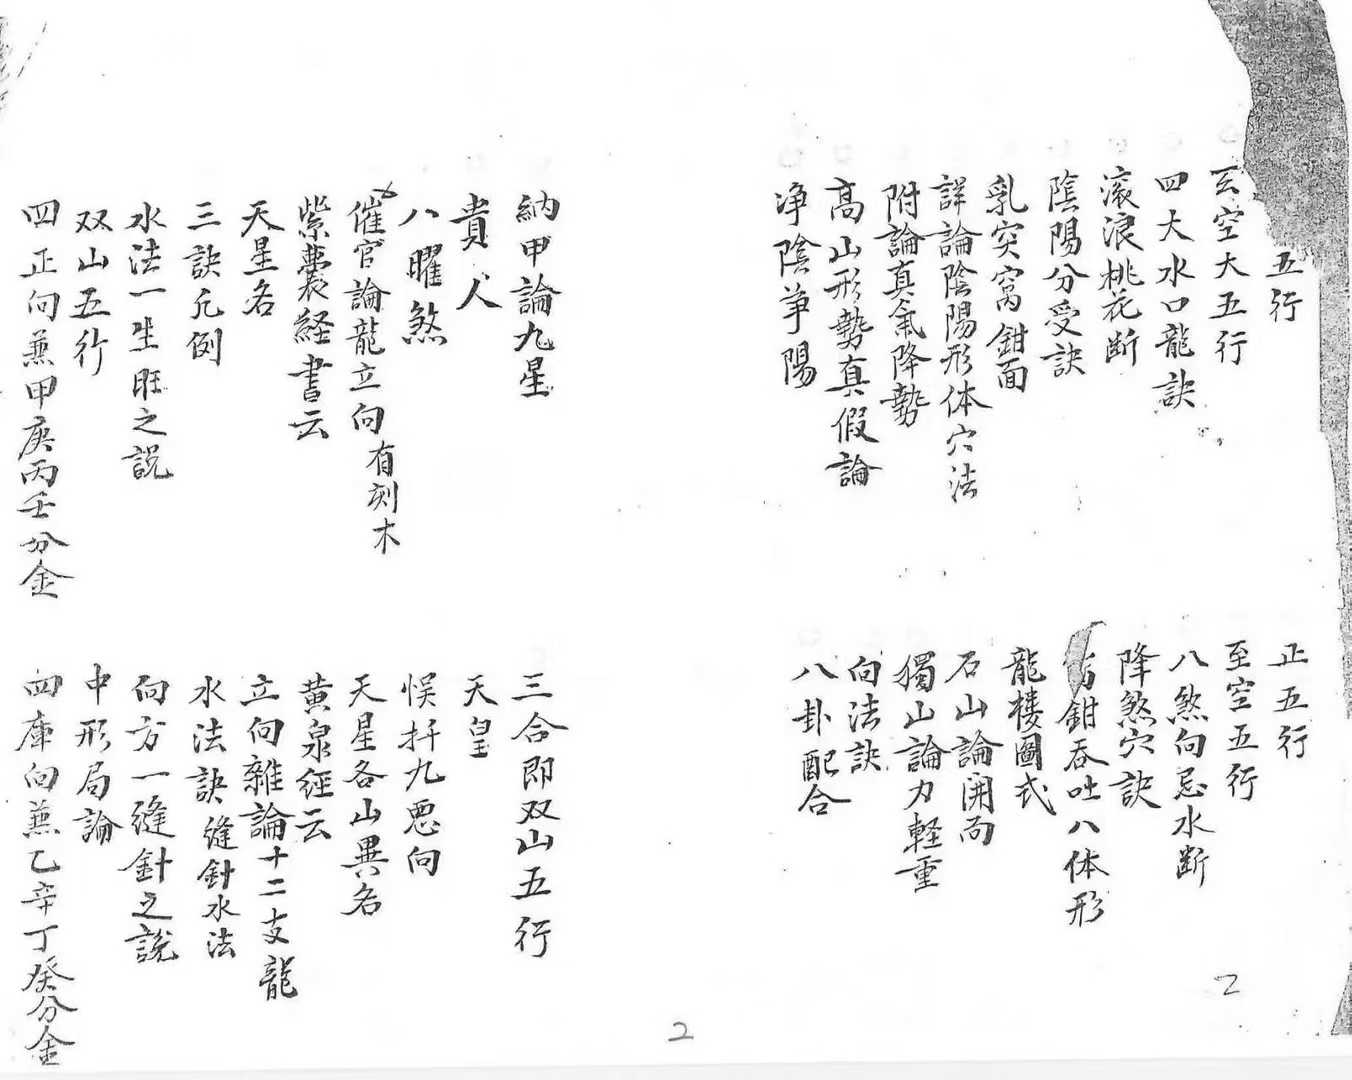 五行
正五行
玄空大五行
至空五行
四大水口龍訣
八煞向忌水断
滚浪桃花断
降煞穴訣
陰陽分受訣
鉗吞吐八体形
乳突窩鉗面
龍楼圖式
詳論陰陽形体穴法
石山論開面
附論真氣降勢
獨山論力軽重
高山形勢真假論
向法訣
净陰争陽
八卦配合
納甲論九星
三合即双山五行
貴人
天皇
八曜煞
悞扦九悪向
催官論龍立向有刻木
天星各山異名
紫囊経書云
黄泉経云
天星名
立向雜論十二支龍
三訣凡例
水法訣縫針水法
水法一生旺之説
向方一縫針之説
双山五行
中形局論
四正向兼甲庚丙壬分金
四庫向兼乙辛丁癸分金
2
2